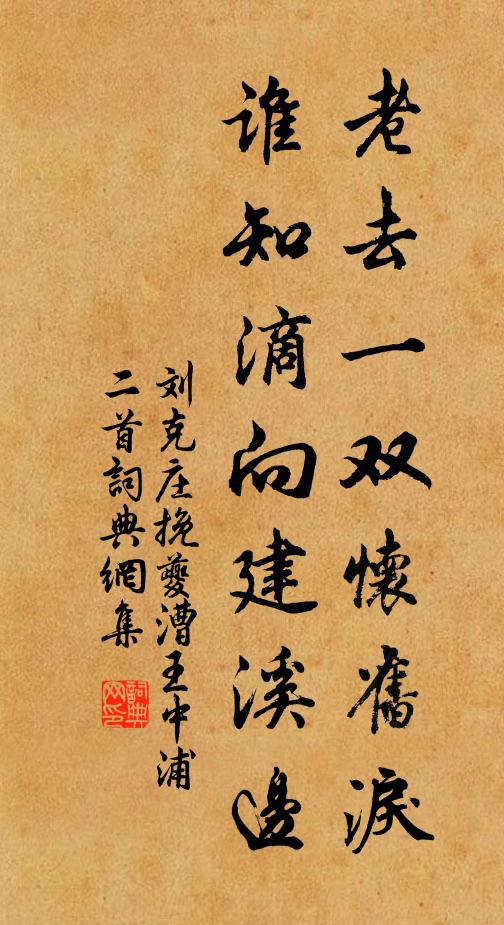 老去一双懷舊淚
谁知滴向建溪邊
刘克庄挽夔漕王中浦
二首詞典網集
詞典
网印